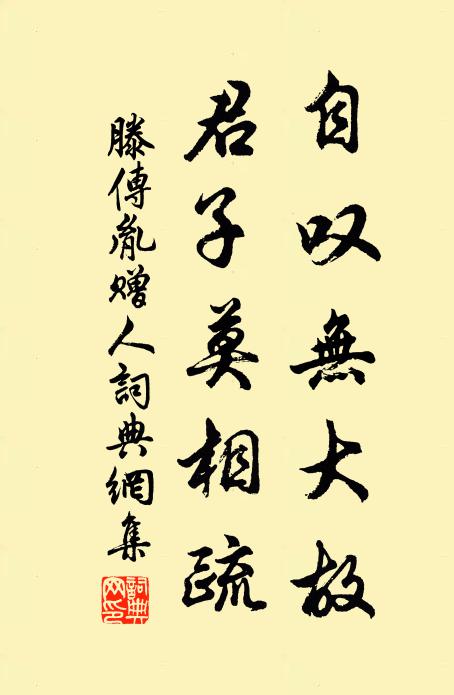 自叹無大故
君子莫相疏
滕傳胤赠人詞典網集
詞典网印